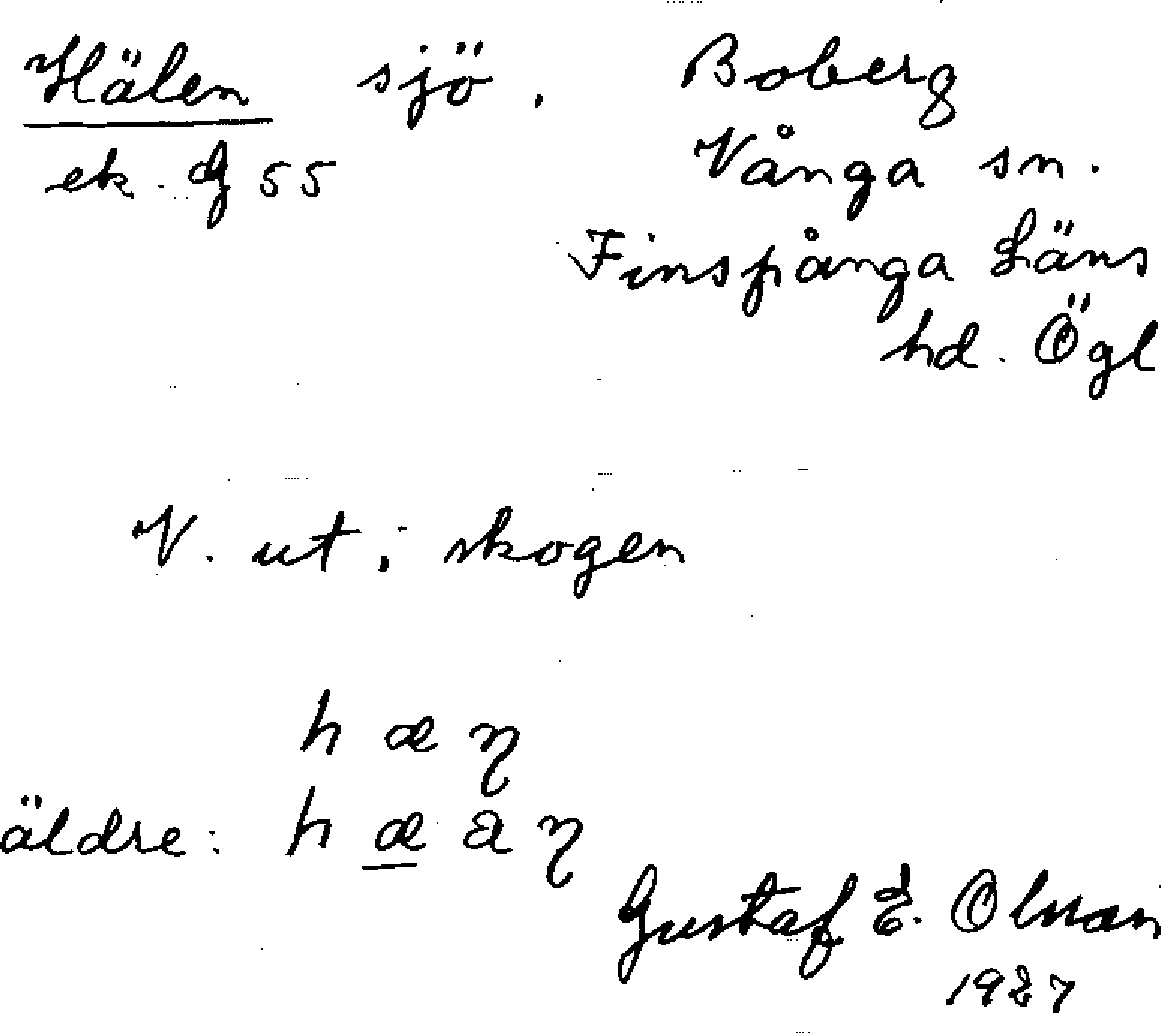 Hälen sjö. Boberg
ek. G 55 Vånga sn.
Finspånga Läns
hd. Ögl
V. ut i skogen
h æ η
äldre: h æ a η
Gustaf E. Olsson
1927